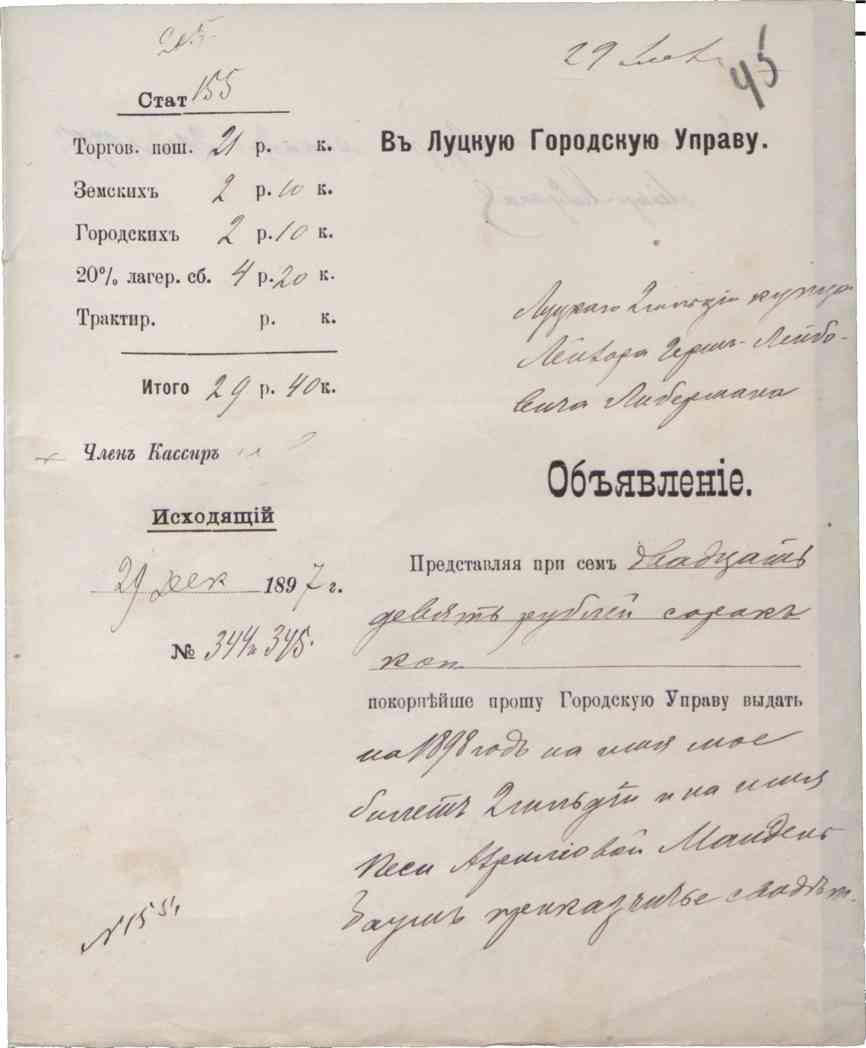 205
Стат 155
Торгов. пош. 21 р. к.
Земскихъ 2 р. 10 к.
Городскихъ 2 р. 10 к.
20% лагер. сб. 4 р. 20 к.
Трактир. р. к.
Итого 29 р. 40 к.
Членъ Кассиръ
Исходящій
29 дек 1897 г.
№ 344 и 345.
N 155
29
45
Въ Луцкую Городскую Управу.
Луцкаго 2 гильдіи купца
Герш-Лейбо-
вича Либермана
Объявленіе.
Представляя при семъ двадцать
девять рублей сорокъ
коп
покорнѣйше прошу Городскую Управу выдать
на 1898 годъ на имя мое
билетъ 2 гильдіи и на имя
Песи
приказчичье свидѣт.